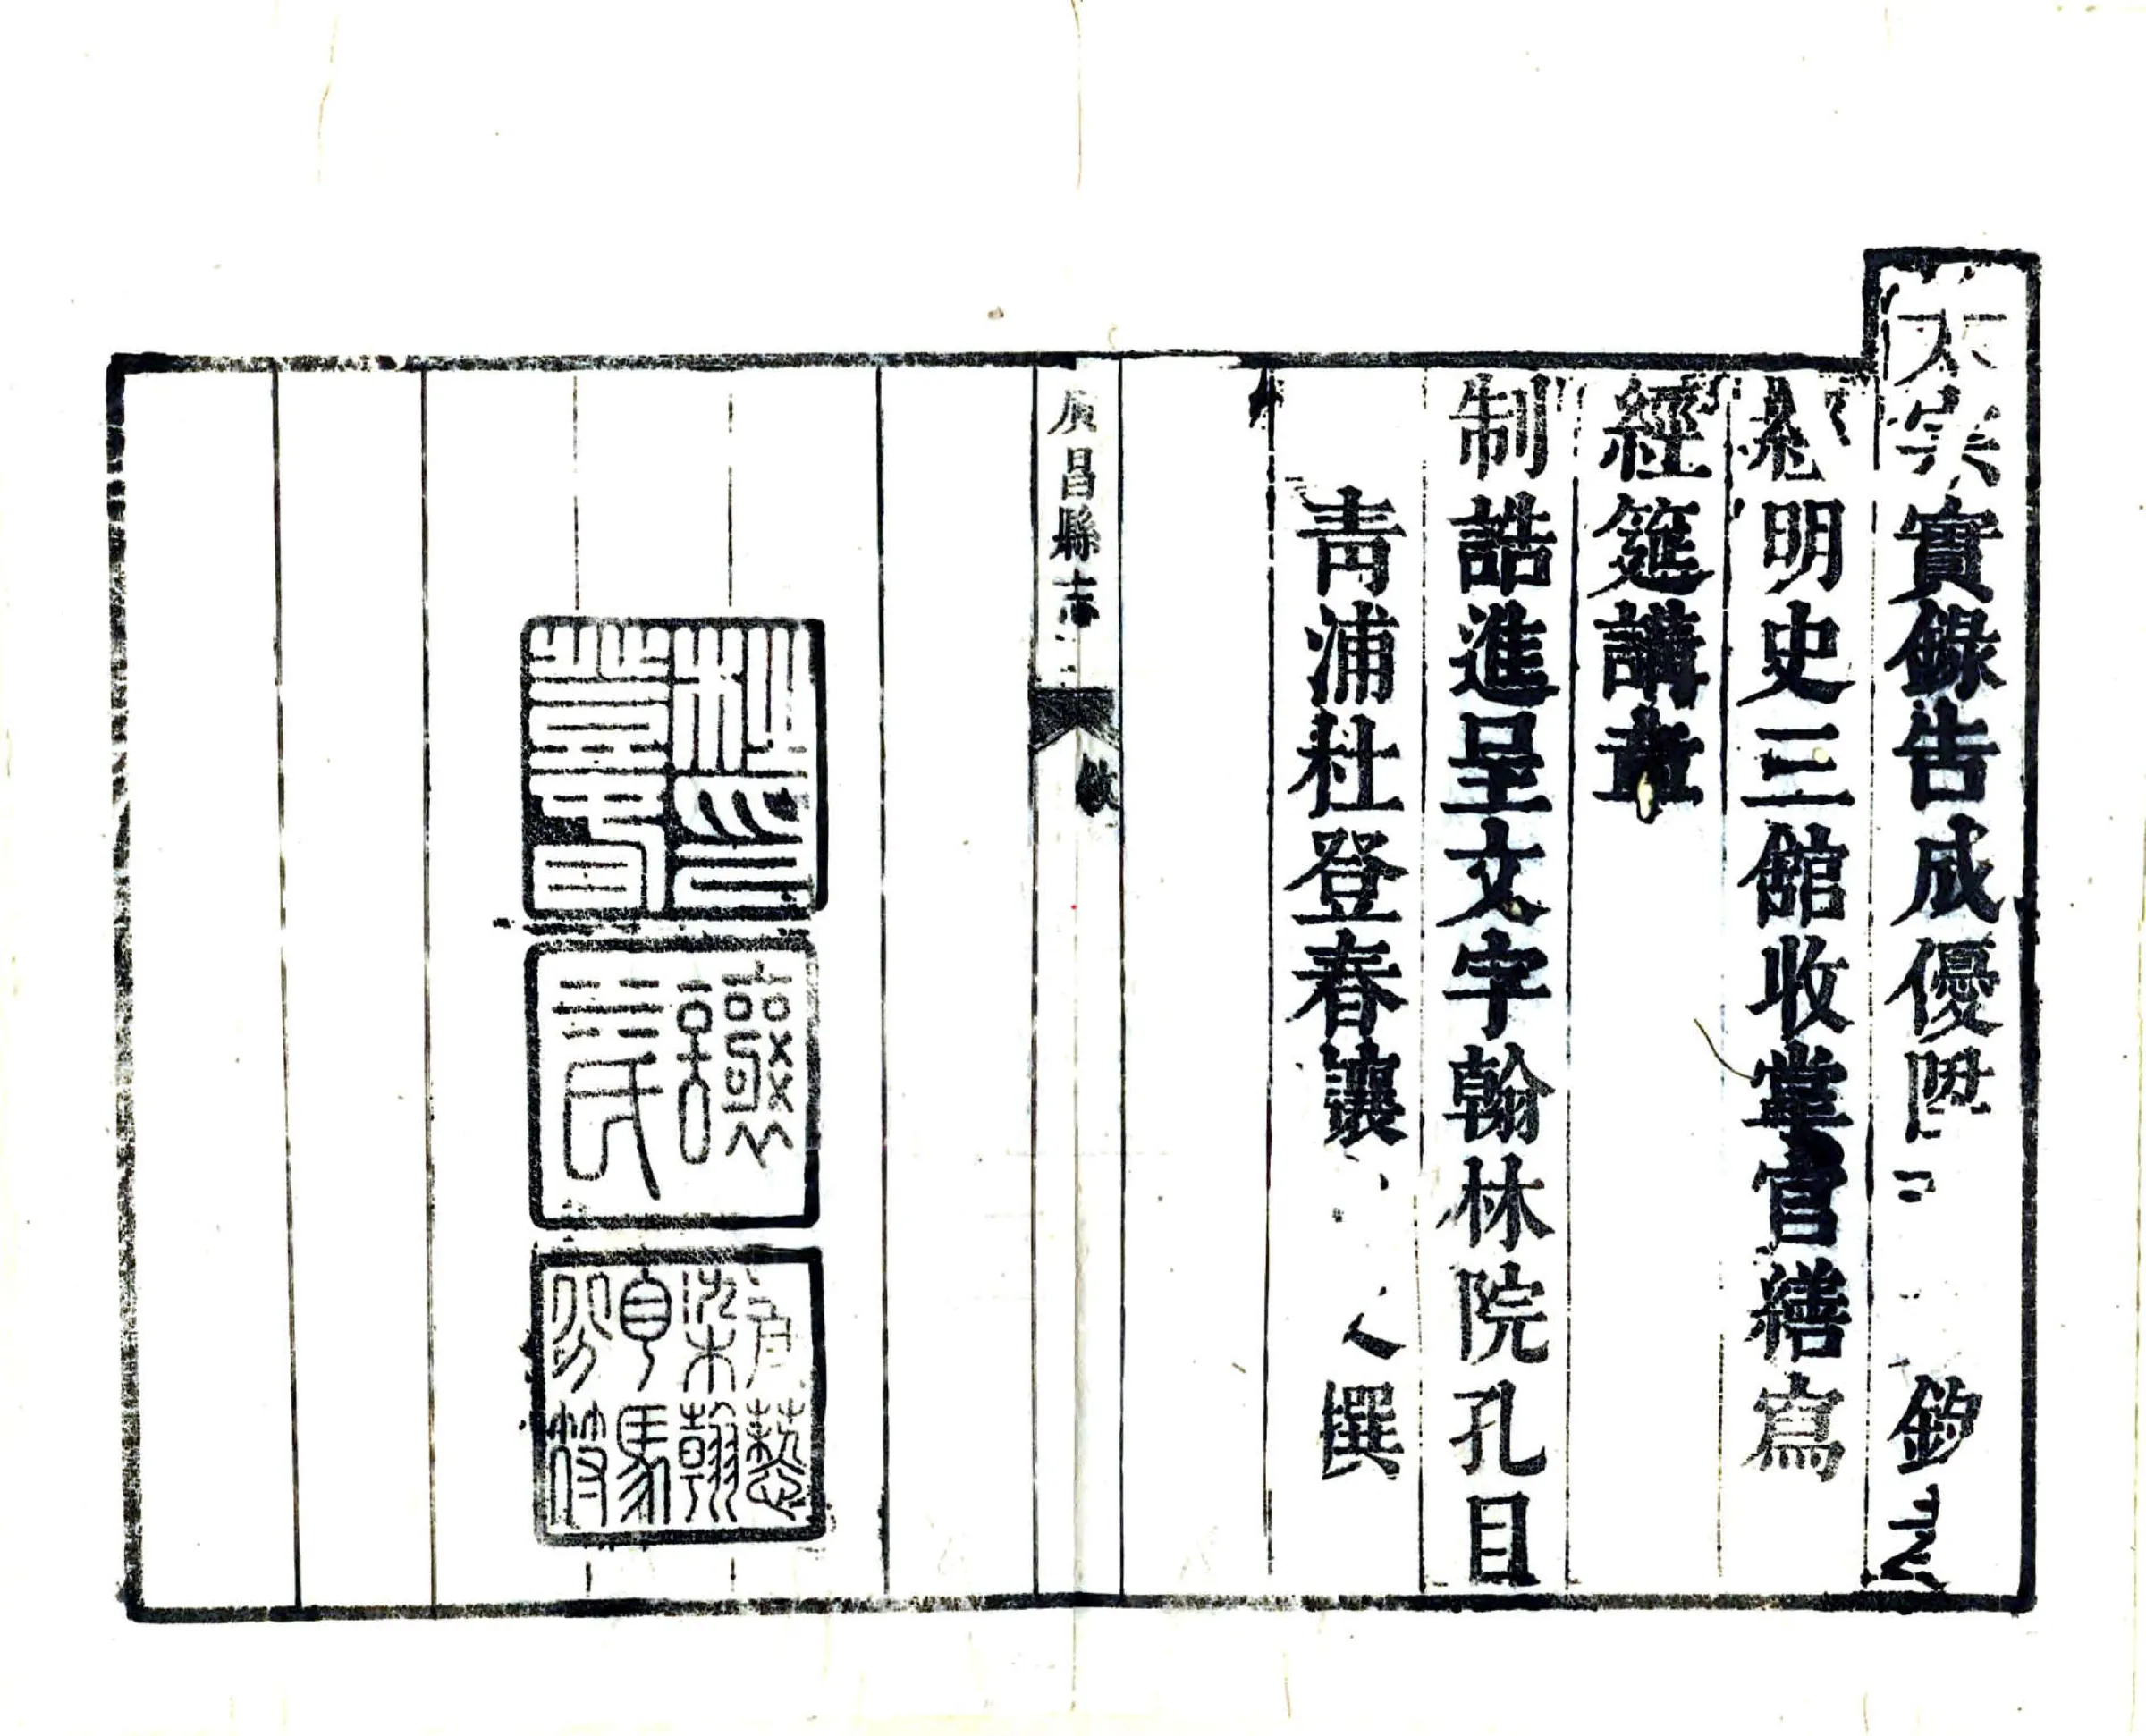 太宗實錄告成優陞
明史三館收掌官繕寫
經筵講章
制誥進呈文字翰林院孔目
青浦杜登春讓撰
廣昌縣志
敘
杜印登春